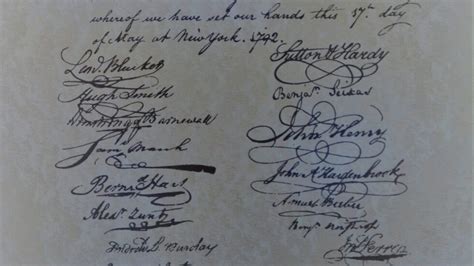 whereof we have set our hands this 17th. day
of May at New York. 1792.
Leod. Bleecker
Hugh Smith
Armstrong & Barnewall
Sam. March
Bernd. Hart
Alexr. Zuntz
Andrew D. Barclay
Sutton & Hardy
Benjn. Seixas
John Henry
John A. Hardenbrook
Amos Beebe
Benjn.